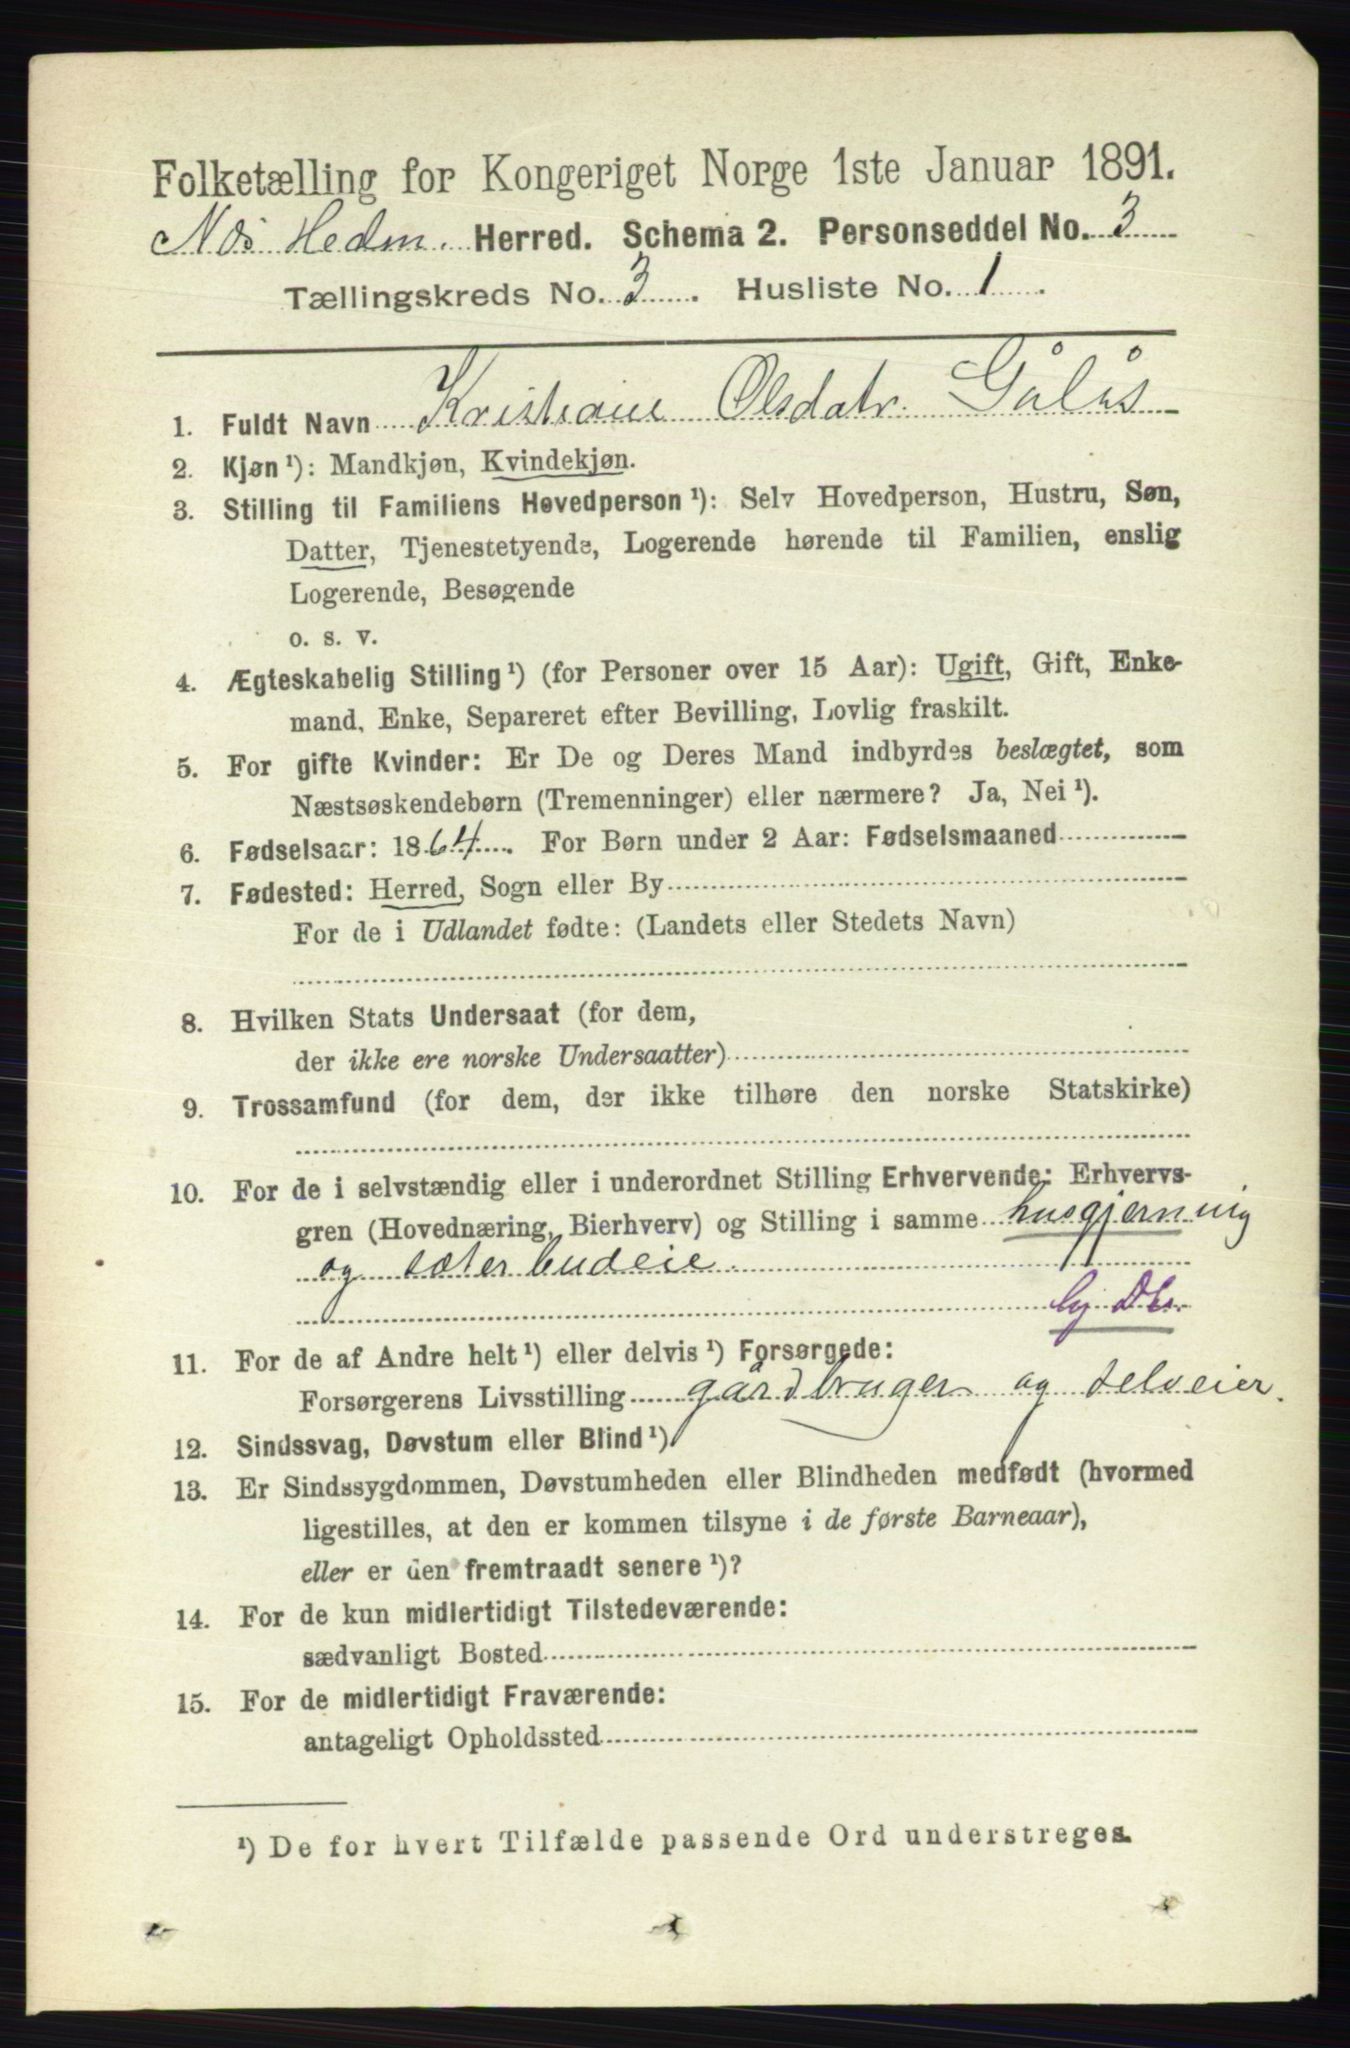 Folketælling for Kongeriget Norge 1ste Januar 1891.
Nes Hedm. Herred. Schema 2. Personseddel No. 3
Tællingskreds No. 3. Husliste No. 1.
1. Fuldt Navn Kristiane Olsdatr. Gålås
2. Kjøn ¹): Mandkjøn, Kvindekjøn.
3. Stilling til Familiens Hovedperson ¹): Selv Hovedperson, Hustru, Søn,
Datter, Tjenestetyende, Logerende hørende til Familien, enslig
Logerende, Besøgende
o. s. v.
4. Ægteskabelig Stilling ¹) (for Personer over 15 Aar): Ugift, Gift, Enke-
mand, Enke, Separeret efter Bevilling, Lovlig fraskilt.
5. For gifte Kvinder: Er De og Deres Mand indbyrdes beslægtet, som
Næstsøskendebørn (Tremenninger) eller nærmere? Ja, Nei ¹).
6. Fødselsaar: 1864. For Børn under 2 Aar: Fødselsmaaned
7. Fødested: Herred, Sogn eller By
For de i Udlandet fødte: (Landets eller Stedets Navn)
8. Hvilken Stats Undersaat (for dem,
der ikke ere norske Undersaatter)
9. Trossamfund (for dem, der ikke tilhøre den norske Statskirke)
10. For de i selvstændig eller i underordnet Stilling Erhvervende: Erhvervs-
gren (Hovednæring, Bierhverv) og Stilling i samme husgjerning
og sæterbudeie.
11. For de af Andre helt ¹) eller delvis ¹) Forsørgede:
Forsørgerens Livsstilling gårdbruger og selveier.
12. Sindssvag, Døvstum eller Blind ¹)
13. Er Sindssygdommen, Døvstumheden eller Blindheden medfødt (hvormed
ligestilles, at den er kommen tilsyne i de første Barneaar),
eller er den fremtraadt senere ¹)?
14. For de kun midlertidigt Tilstedeværende:
sædvanligt Bosted
15. For de midlertidigt Fraværende:
antageligt Opholdssted
¹) De for hvert Tilfælde passende Ord understreges.